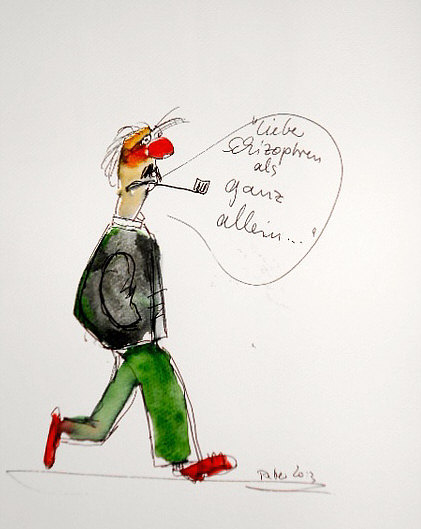 "Lieber
schizophren
als
ganz
allein..."
2013